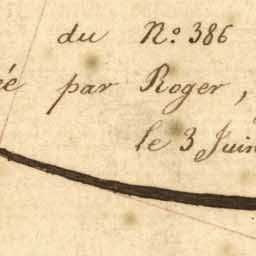 du N.º 386
é par Roger,
le 3 Juin